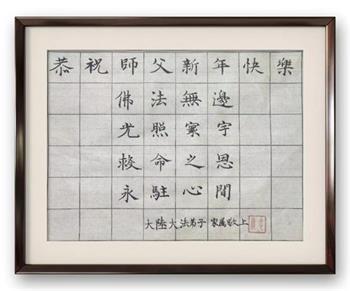 恭祝師父新年快樂
佛法無邊
光照寰宇
救命之恩
永駐心間
大陸大法弟子 家屬敬上